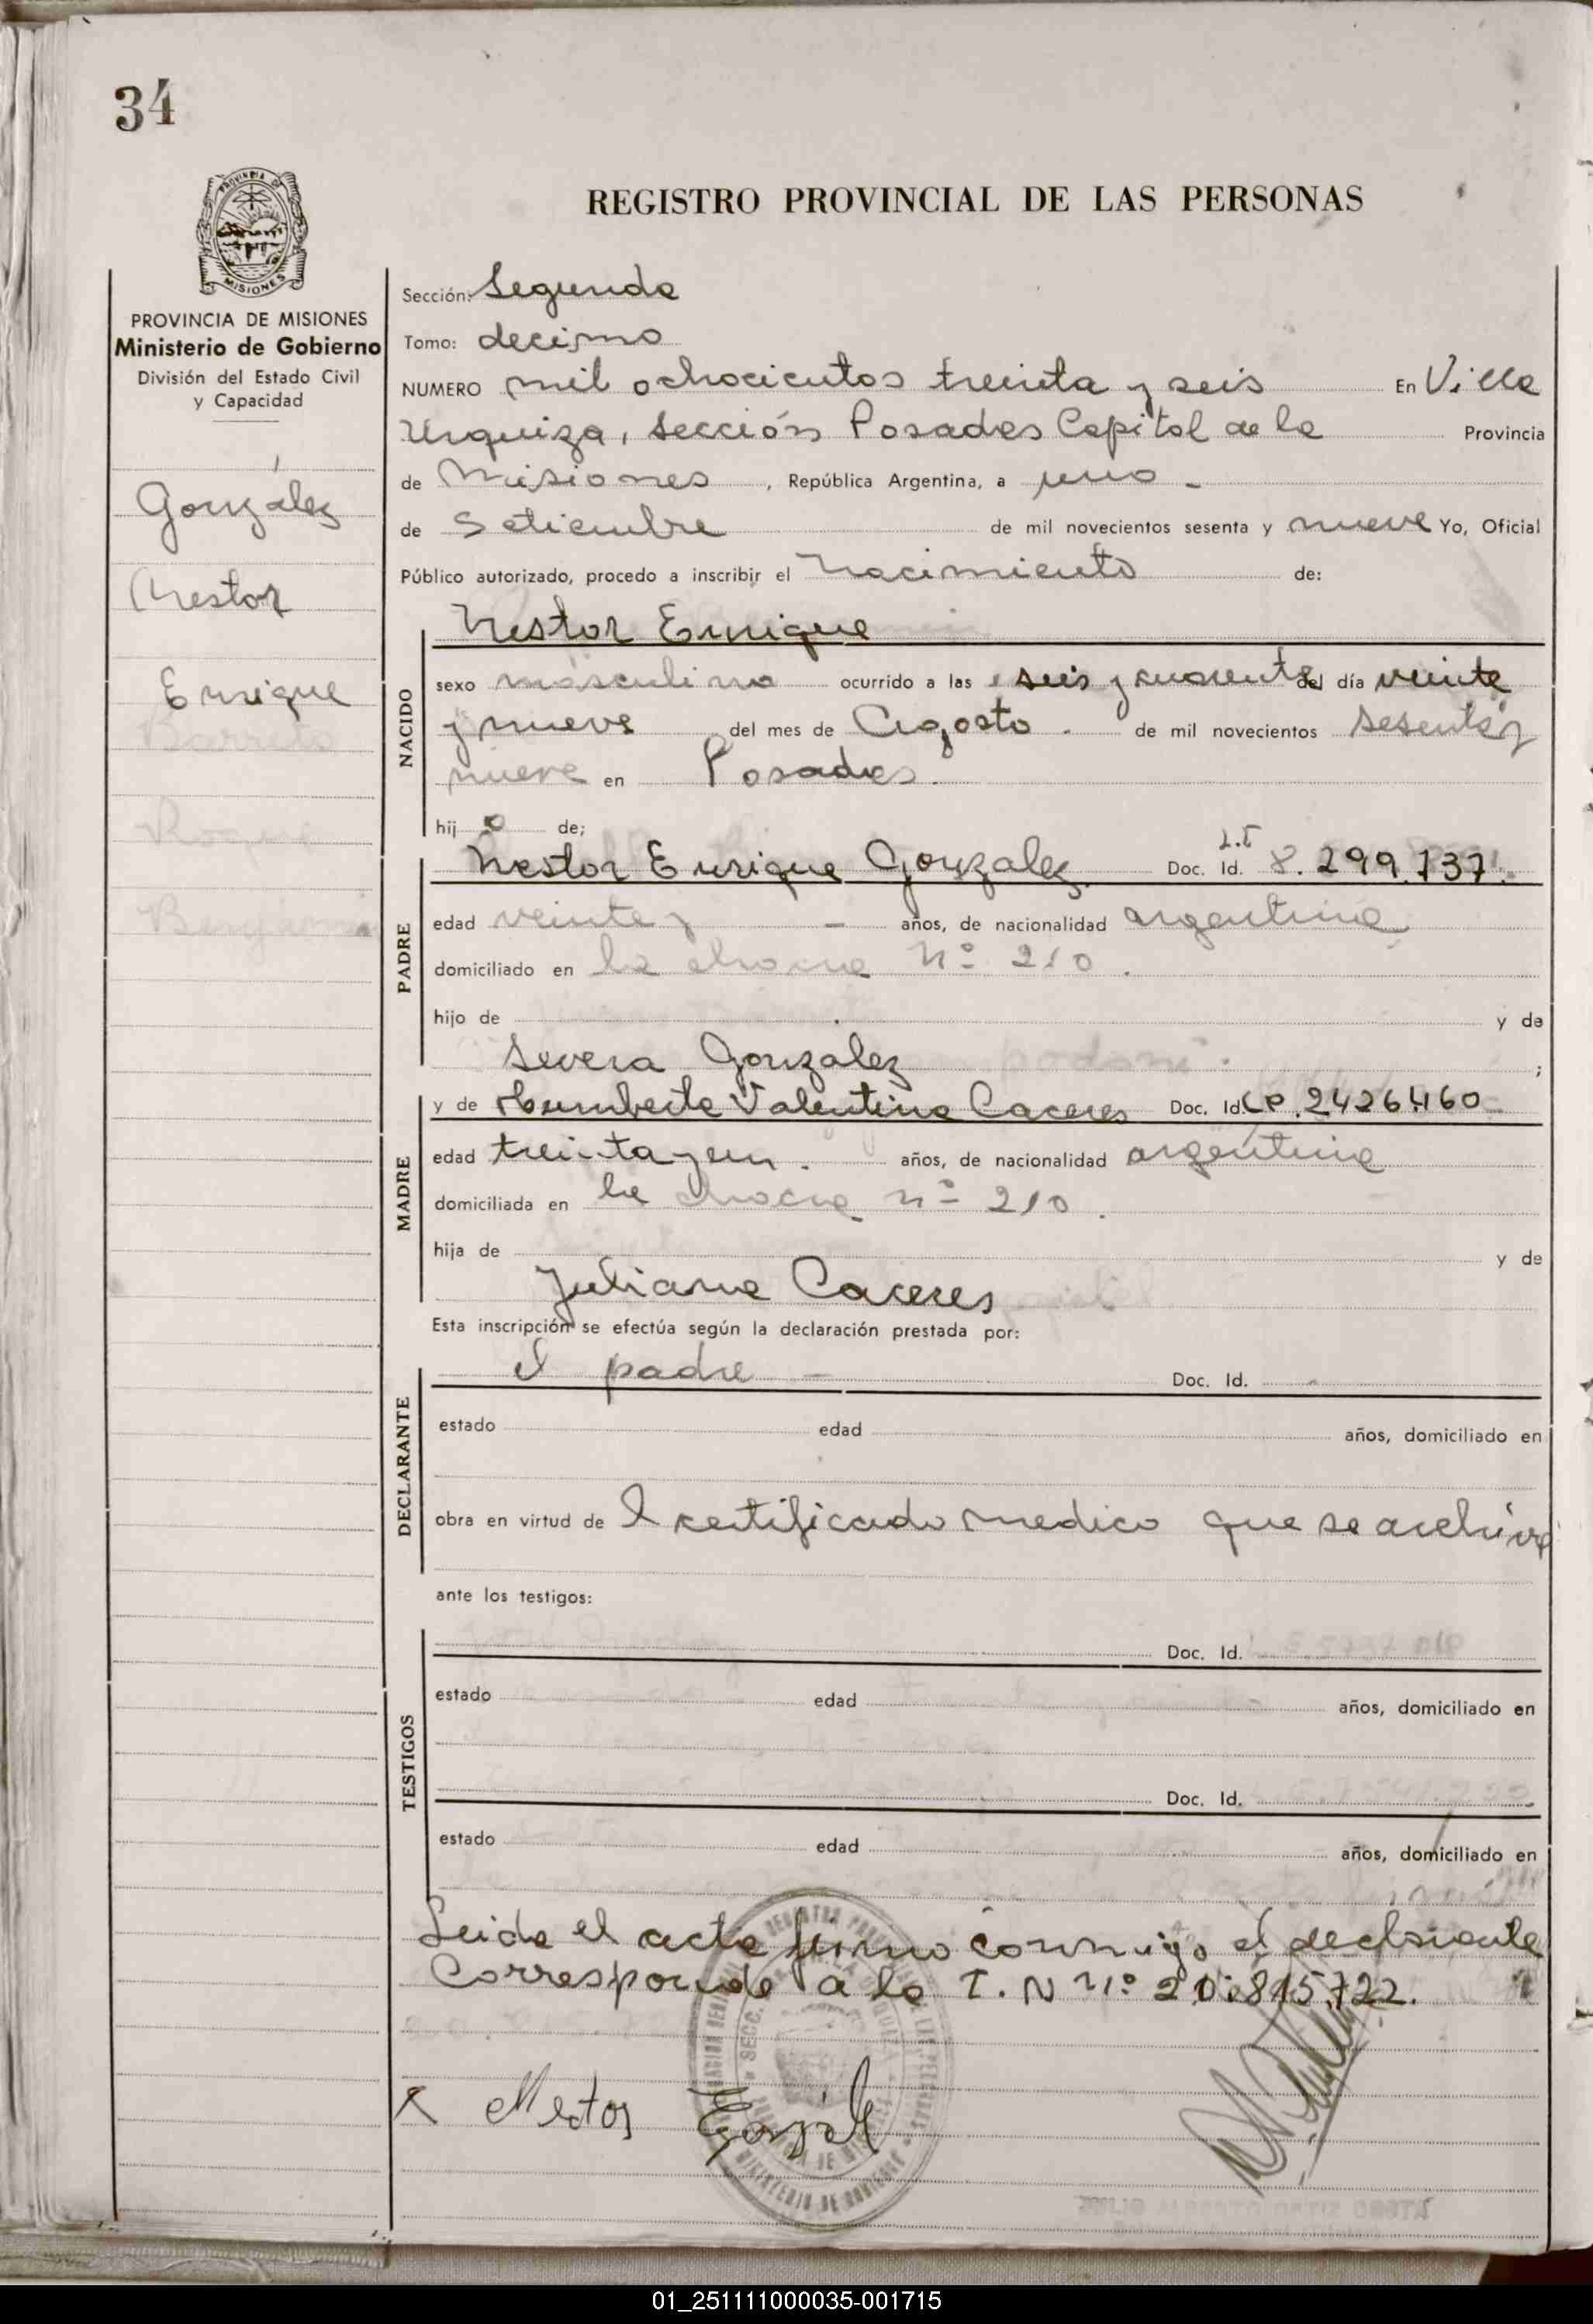 34
PROVINCIA DE
MISIONES
REGISTRO PROVINCIAL DE LAS PERSONAS
PROVINCIA DE MISIONES
Ministerio de Gobierno
División del Estado Civil
y Capacidad
González
Nestor
Enrique
Sección: Segunda
Tomo: decimo
NUMERO mil ochocientos treinta y seis En Villa
Urquiza, sección Posadas Capital de la Provincia
de Misiones, República Argentina, a uno -
de Setiembre de mil novecientos sesenta y nueve Yo, Oficial
Público autorizado, procedo a inscribir el nacimiento de:
Nestor Enrique
NACIDO
sexo masculino ocurrido a las seis y cuarenta del día veinte
y nueve del mes de Agosto. de mil novecientos sesenta y
nueve en Posadas.
hij o de;
PADRE
Nestor Enrique Gonzalez Doc. Id. 8.299.737.
edad veinte y - años, de nacionalidad argentina
domiciliado en la chacra Nº 210.
hijo de y de
Severa Gonzalez ;
MADRE
y de Humberta Valentina Caceres Doc. Id. 2426460
edad treinta y un. años, de nacionalidad argentina
domiciliada en la chacra nº 210.
hija de y de
Juliana Caceres
Esta inscripción se efectúa según la declaración prestada por:
DECLARANTE
el padre - Doc. Id.
estado edad años, domiciliado en
obra en virtud de l certificado medico que se archiva
ante los testigos:
TESTIGOS
Doc. Id.
estado edad años, domiciliado en
Doc. Id.
estado edad años, domiciliado en
Leida el acta firmo conmigo el declarante
Corresponde a la T. N nº 20.815.722.
Nestor Gonzalez
01_251111000035-001715